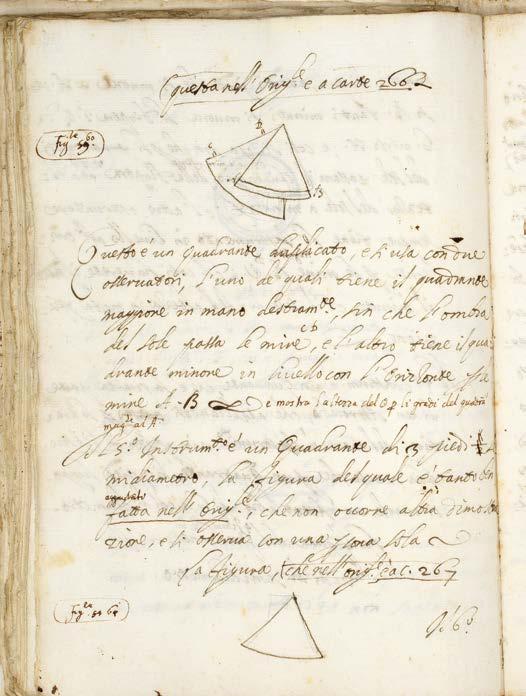 Questa nell' Orig.le è a carte 266
fig.le 59 60
D
C
A
B
Questo è un quadrante duplicato, e si usa con due
osservatori, l'uno de' quali tiene il quadrante
maggiore in mano destram.te, sin che l'ombra
del sole passa le mire C D, e l'altro tiene il qua
drante minore in livello con l'orizonte p la
mire A B e mostra l'altezza del p li gradi del quadra
mag.r al A
Il 5.o Instrum.to è un Quadrante di 3 piedi
midiametro, la figura del quale è tanto ben
aggiustata
fatta nell' Orig.le, che non occorre altra dimostra
zione, e si osserva con una sola
la figura, che nell' orig.le è a c. 267
fig.ra 61
Il 6.o